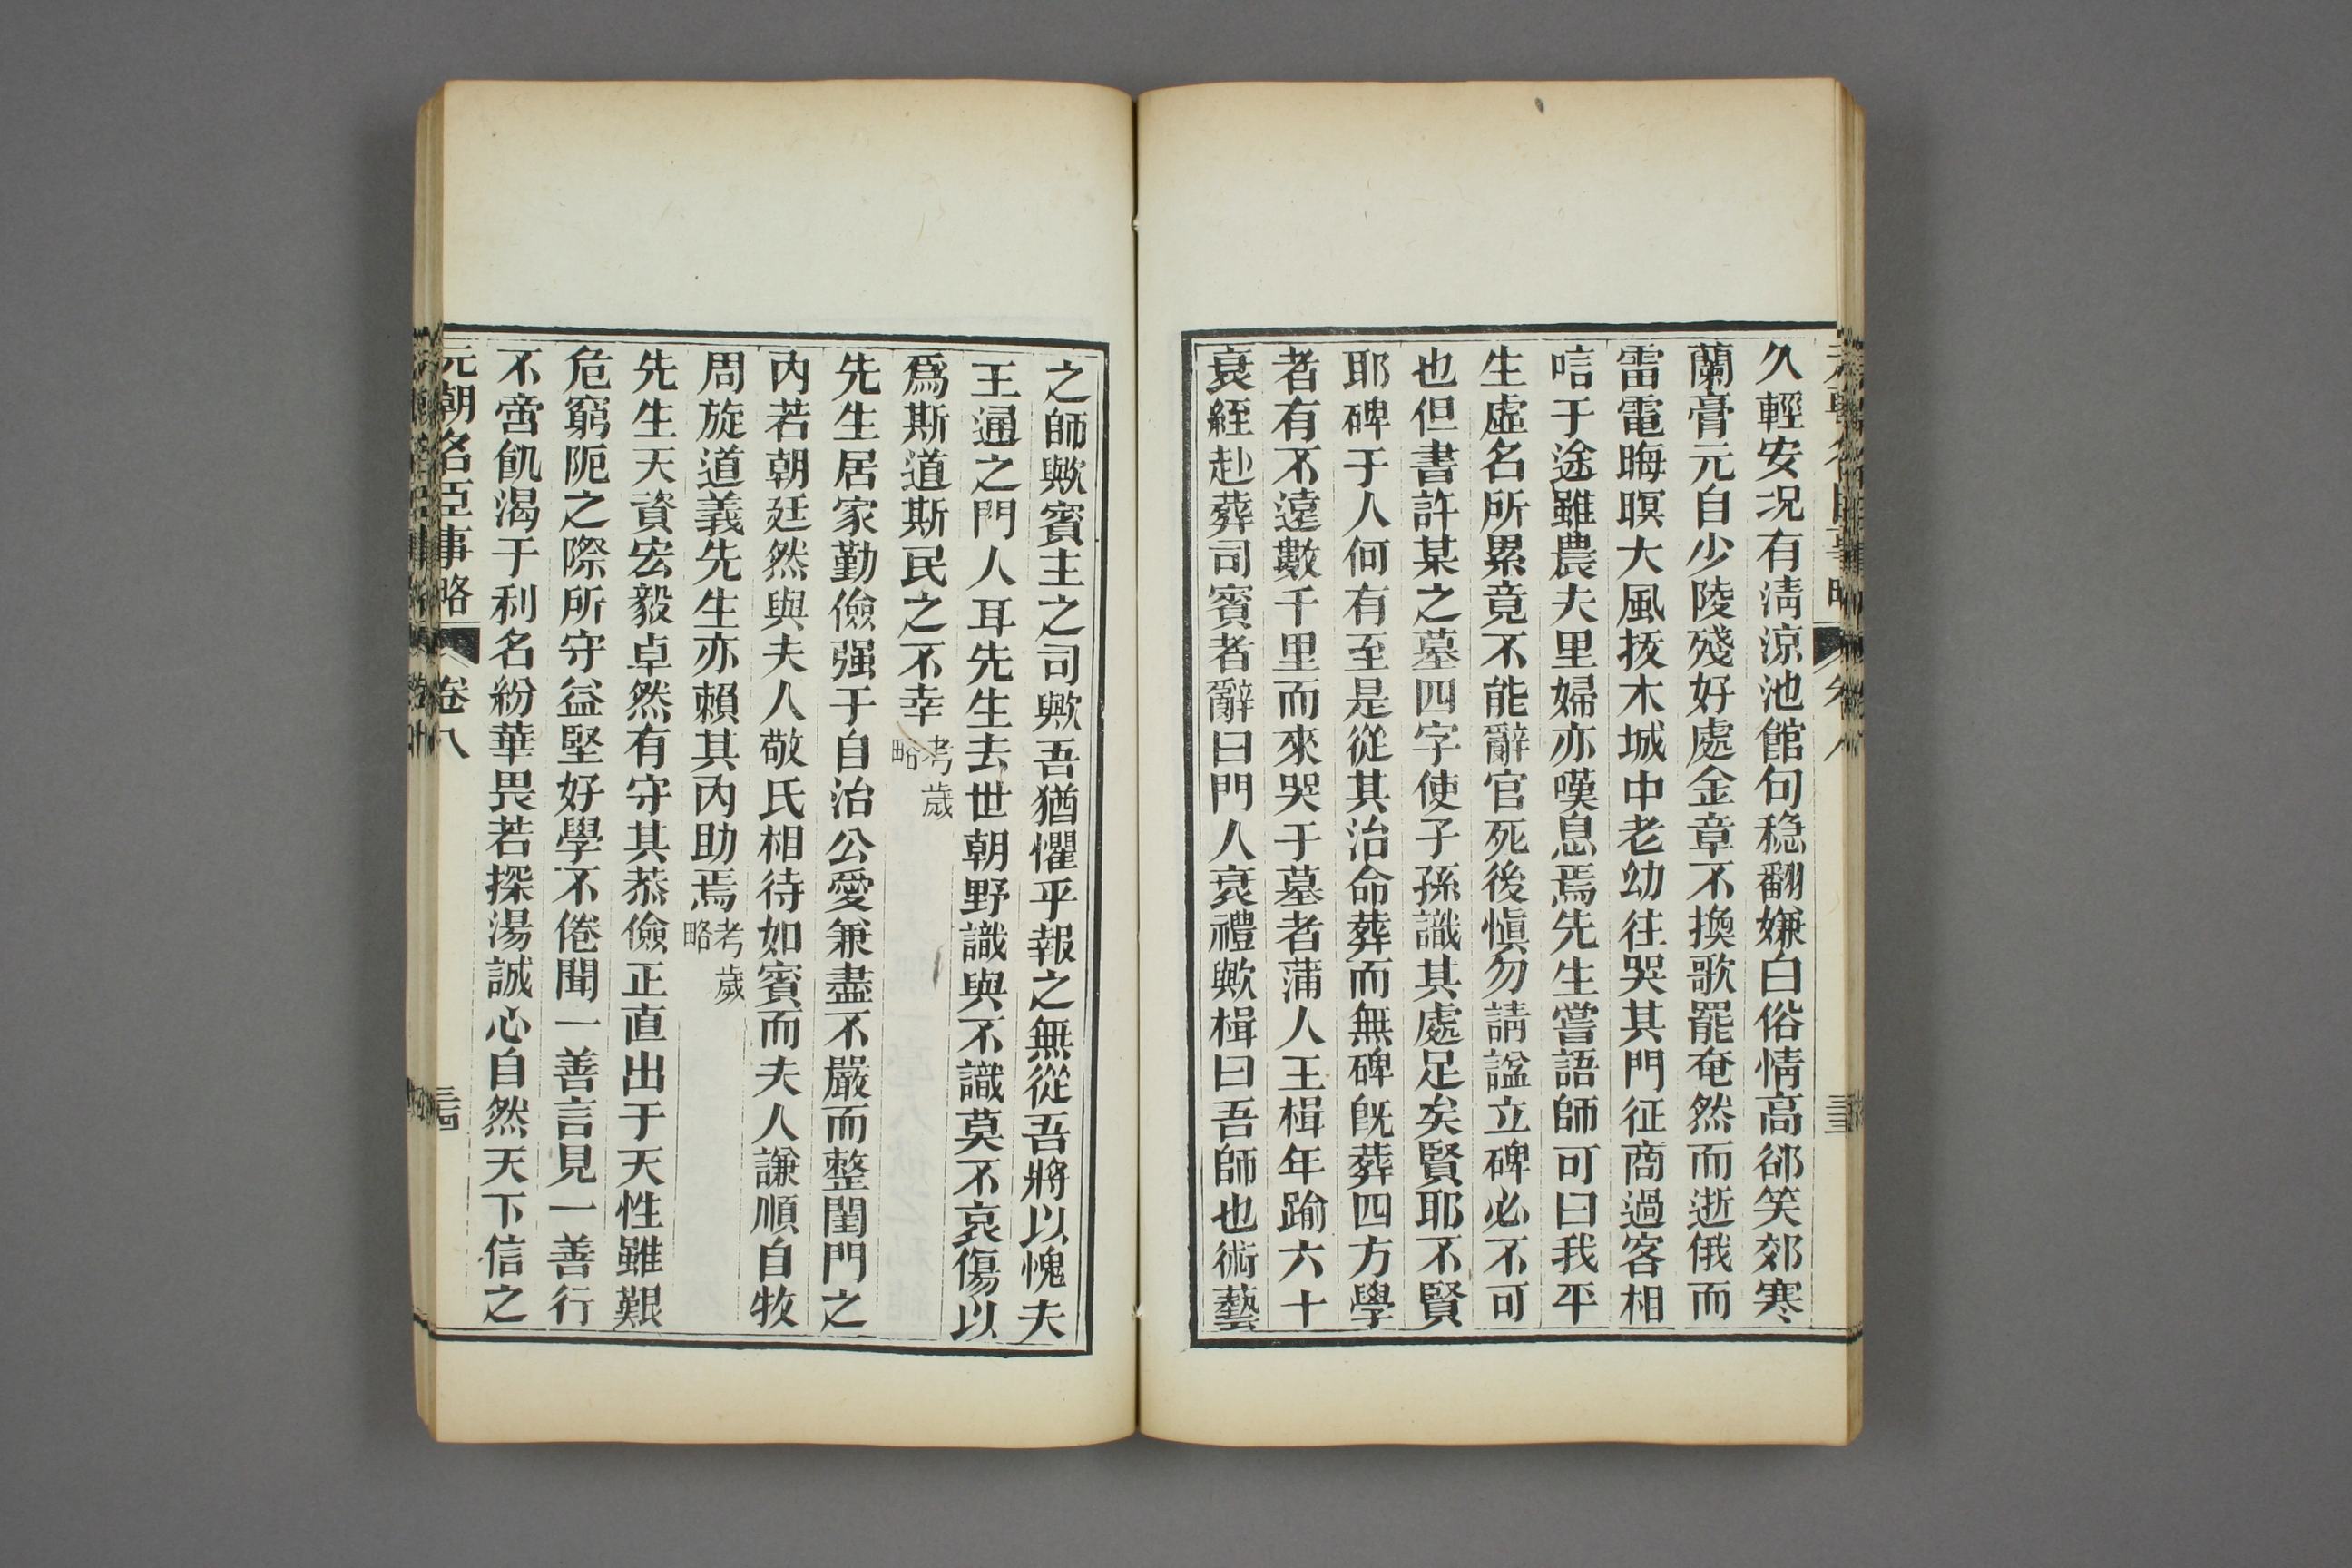 久輕安況有淸涼池館句穩翻嫌白俗情高郤笑郊寒
蘭膏元自少陵殘好處金章不換歌罷奄然而逝俄而
雷電晦暝大風拔木城中老幼往哭其門征商過客相
唁于途雖農夫里婦亦嘆息焉先生嘗語師可曰我平
生虛名所累竟不能辭官死後愼勿請諡立碑必不可
也但書許某之墓四字使子孫識其處足矣賢耶不賢
耶碑于人何有至是從其治命葬而無碑旣葬四方學
者有不遠數千里而來哭于墓者蒲人王楫年踰六十
衰絰赴葬司賓者辭曰門人衰禮歟楫曰吾師也術藝
之師歟賓主之司歟吾猶懼乎報之無從吾將以愧夫
王通之門人耳先生去世朝野識與不識莫不哀傷以
爲斯道斯民之不幸考歲略
先生居家勤儉强于自治公愛兼盡不嚴而整閨門之
內若朝廷然與夫人敬氏相待如賓而夫人謙順自牧
周旋道義先生亦賴其內助焉考歲略
先生天資宏毅卓然有守其恭儉正直出于天性雖艱
危窮阨之際所守益堅好學不倦聞一善言見一善行
不啻飢渴于利名紛華畏若探湯誠心自然天下信之
元朝名臣事略 卷八 三十四